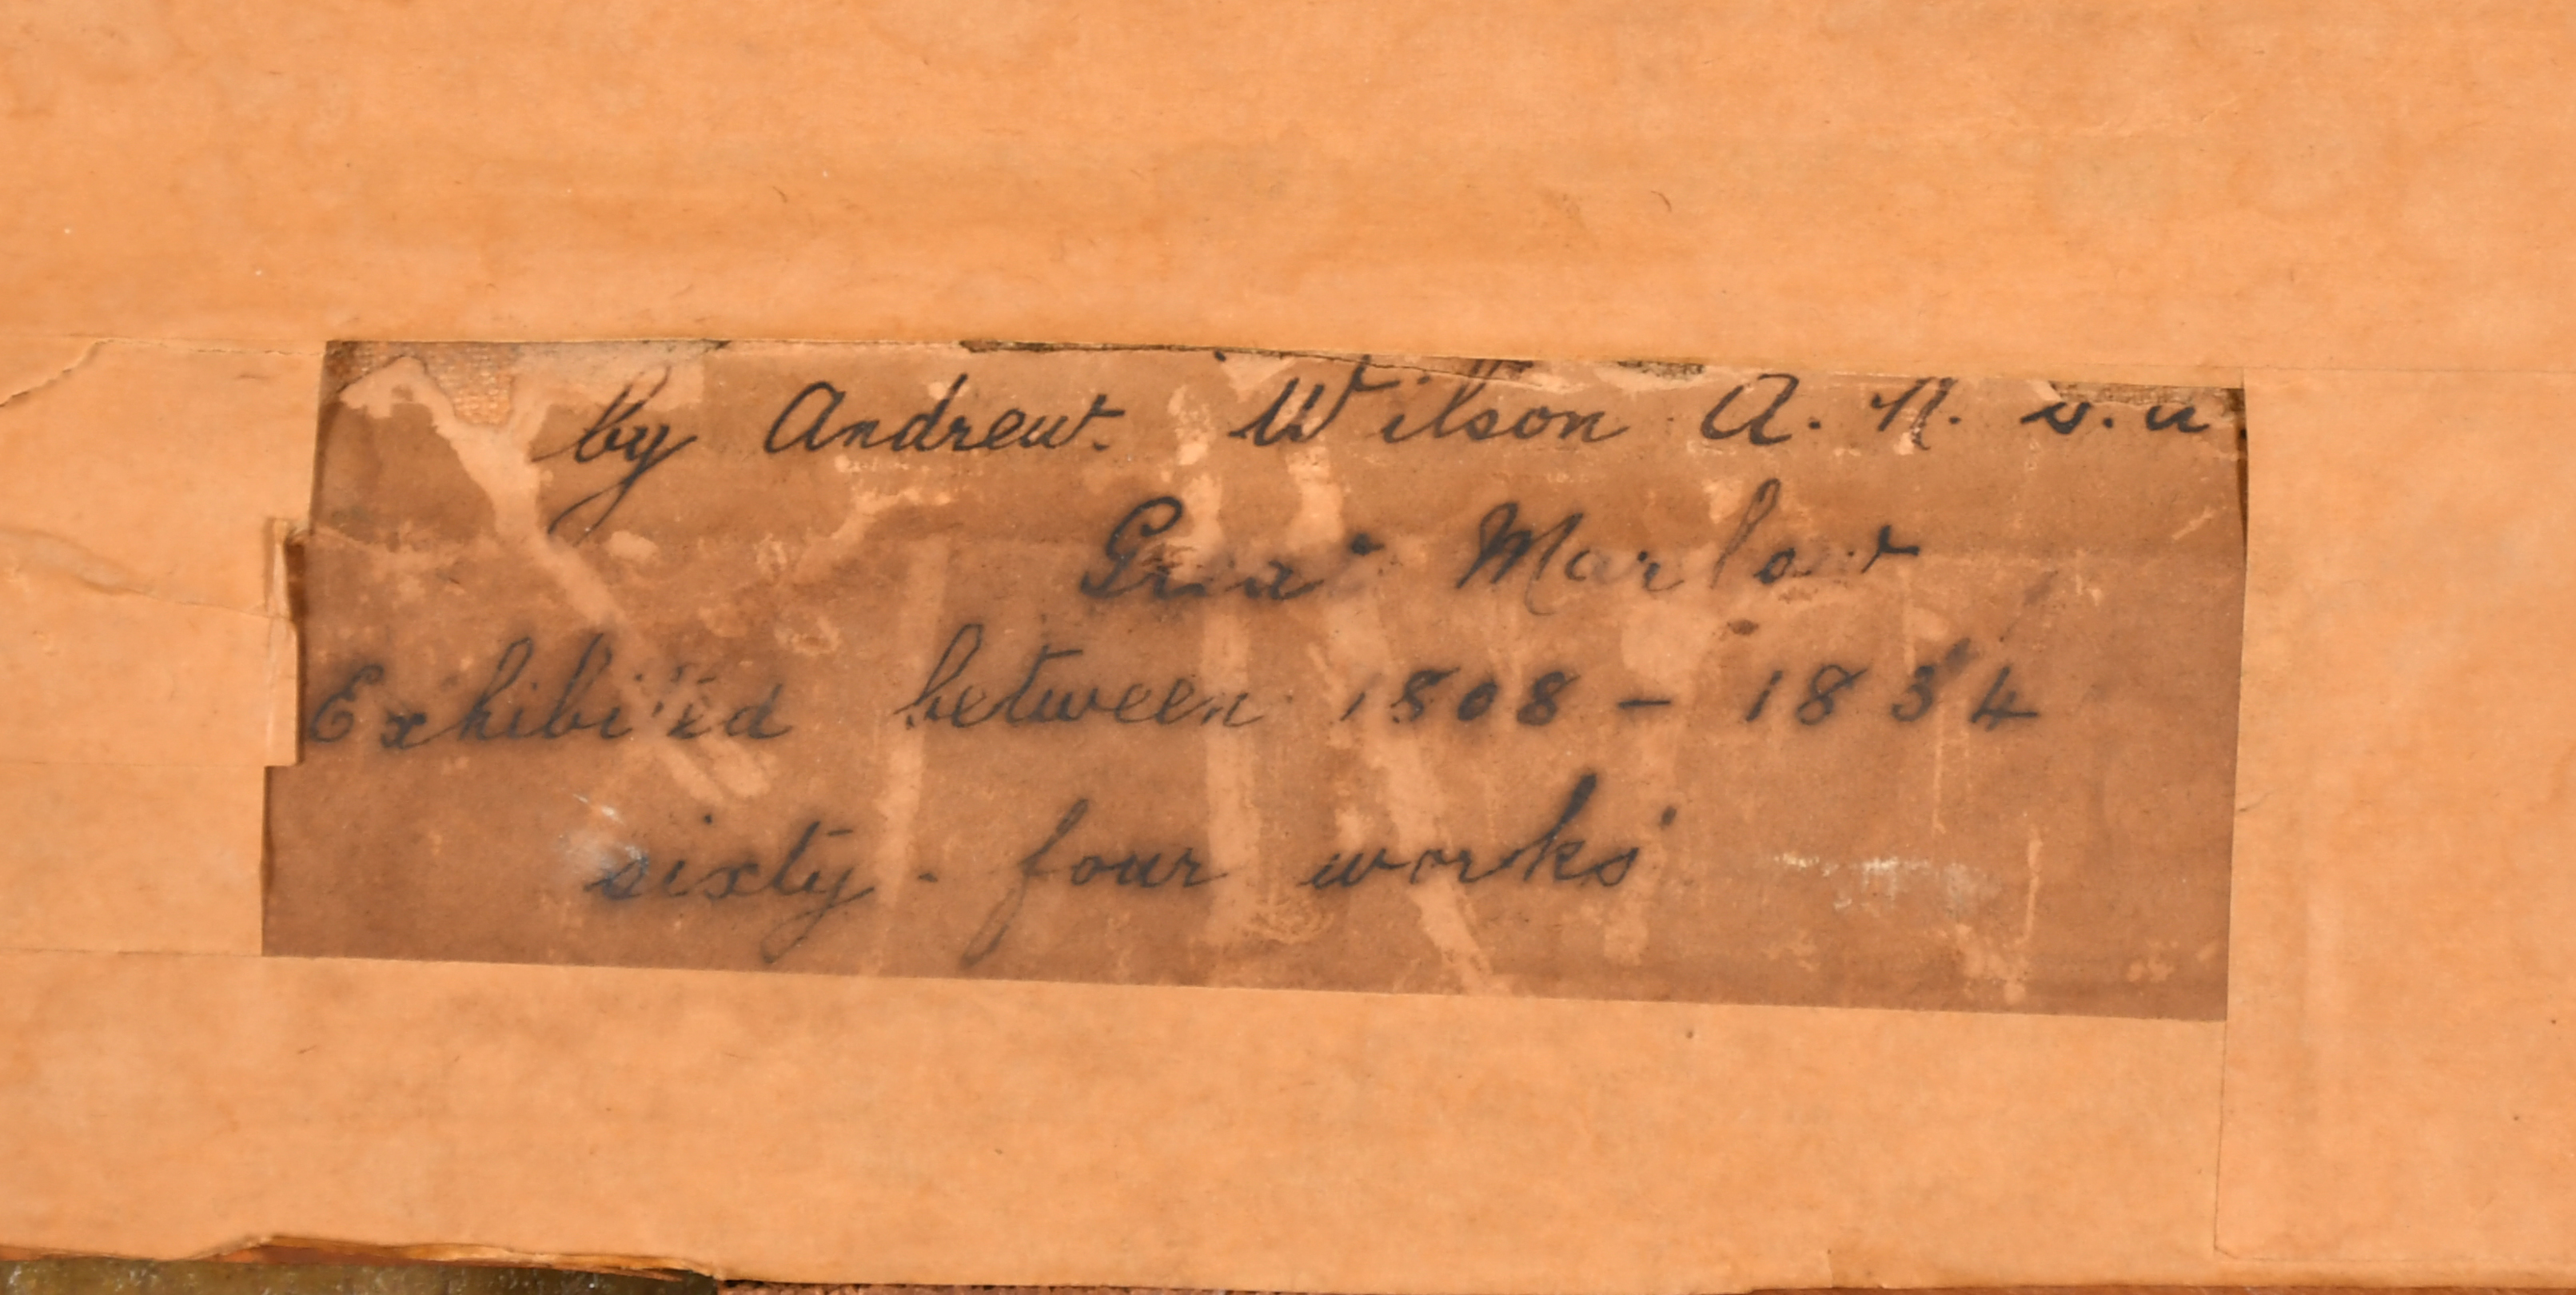 by Andrew Wilson A. R. S. A
Great Marlow
Exhibited between 1808 - 1834
sixty - four works